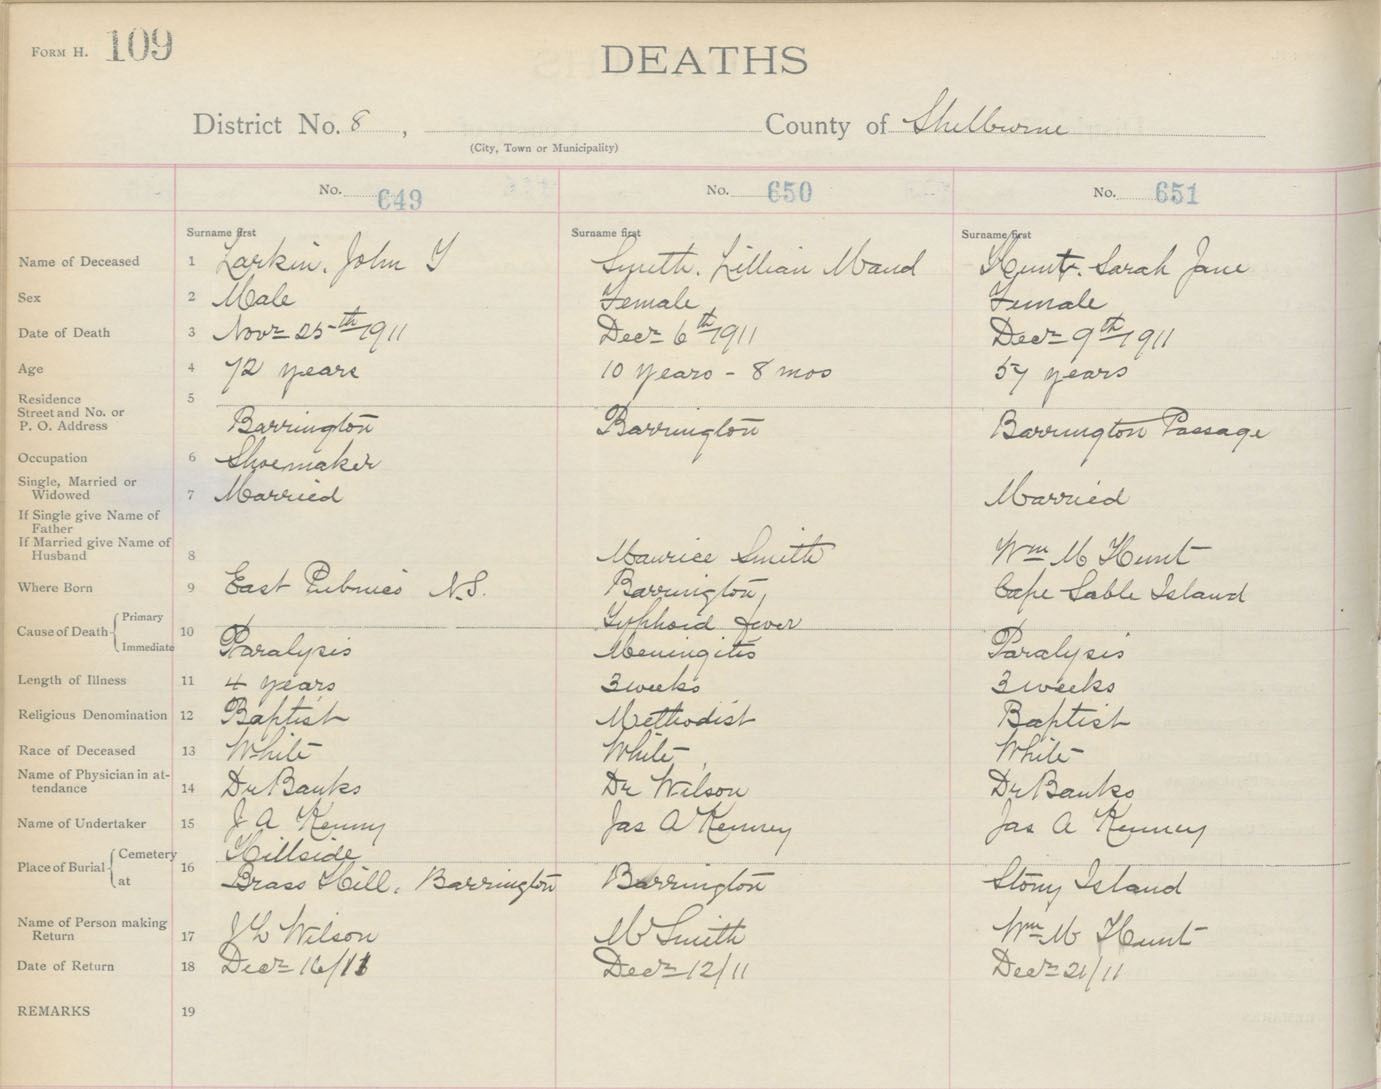 FORM H. 109
DEATHS
District No. 8 , County of Shelburne
(City, Town or Municipality)
No. 649 No. 650 No. 651
Surname first Surname first Surname first
Name of Deceased 1 Larkin, John Smith, Lillian Maud Hunt, Sarah Jane
Sex 2 Male Female Female
Date of Death 3 Novr 25th 1911 Decr 6th 1911 Decr 9th 1911
Age 4 72 years 10 years - 8 mos 57 years
Residence 5
Street and No. or
P. O. Address Barrington Barrington Barrington Passage
Occupation 6 Shoemaker
Single, Married or
Widowed 7 Married Married
If Single give Name of
Father
If Married give Name of
Husband 8 Maurice Smith Wm M Hunt
Where Born 9 East Pubnico N.S. Barrington, Cape Sable Island
Cause of Death Primary 10 Typhoid fever
Immediate Paralysis Meningitis Paralysis
Length of Illness 11 4 years 3 weeks 3 weeks
Religious Denomination 12 Baptist Methodist Baptist
Race of Deceased 13 White White White
Name of Physician in at-
tendance 14 Dr Banks Dr Wilson Dr Banks
Name of Undertaker 15 J A Kenny Jas A Kenney Jas A Kenney
Place of Burial Cemetery 16 Hillside
at Brass Hill, Barrington Barrington Stony Island
Name of Person making
Return 17 J L Wilson M Smith Wm M Hunt
Date of Return 18 Decr 16/11 Decr 12/11 Decr 21/11
REMARKS 19